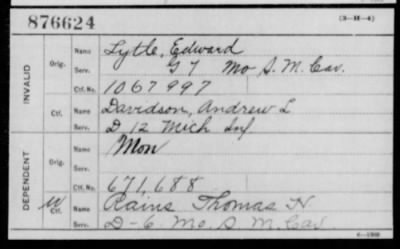 876624
(3-H-4)
INVALID
Orig.
Name Lytle, Edward
Serv. G 7 Mo S. M. Cav.
Ctf. No. 1067997
Ctf.
Name Davidson, Andrew L
Serv. D 12 Mich Inf
DEPENDENT
Orig.
Name Mon
Serv.
Ctf. No. 671,688
W Ctf.
Name Rains Thomas H
Serv. D-6 Mo. S M. Cav